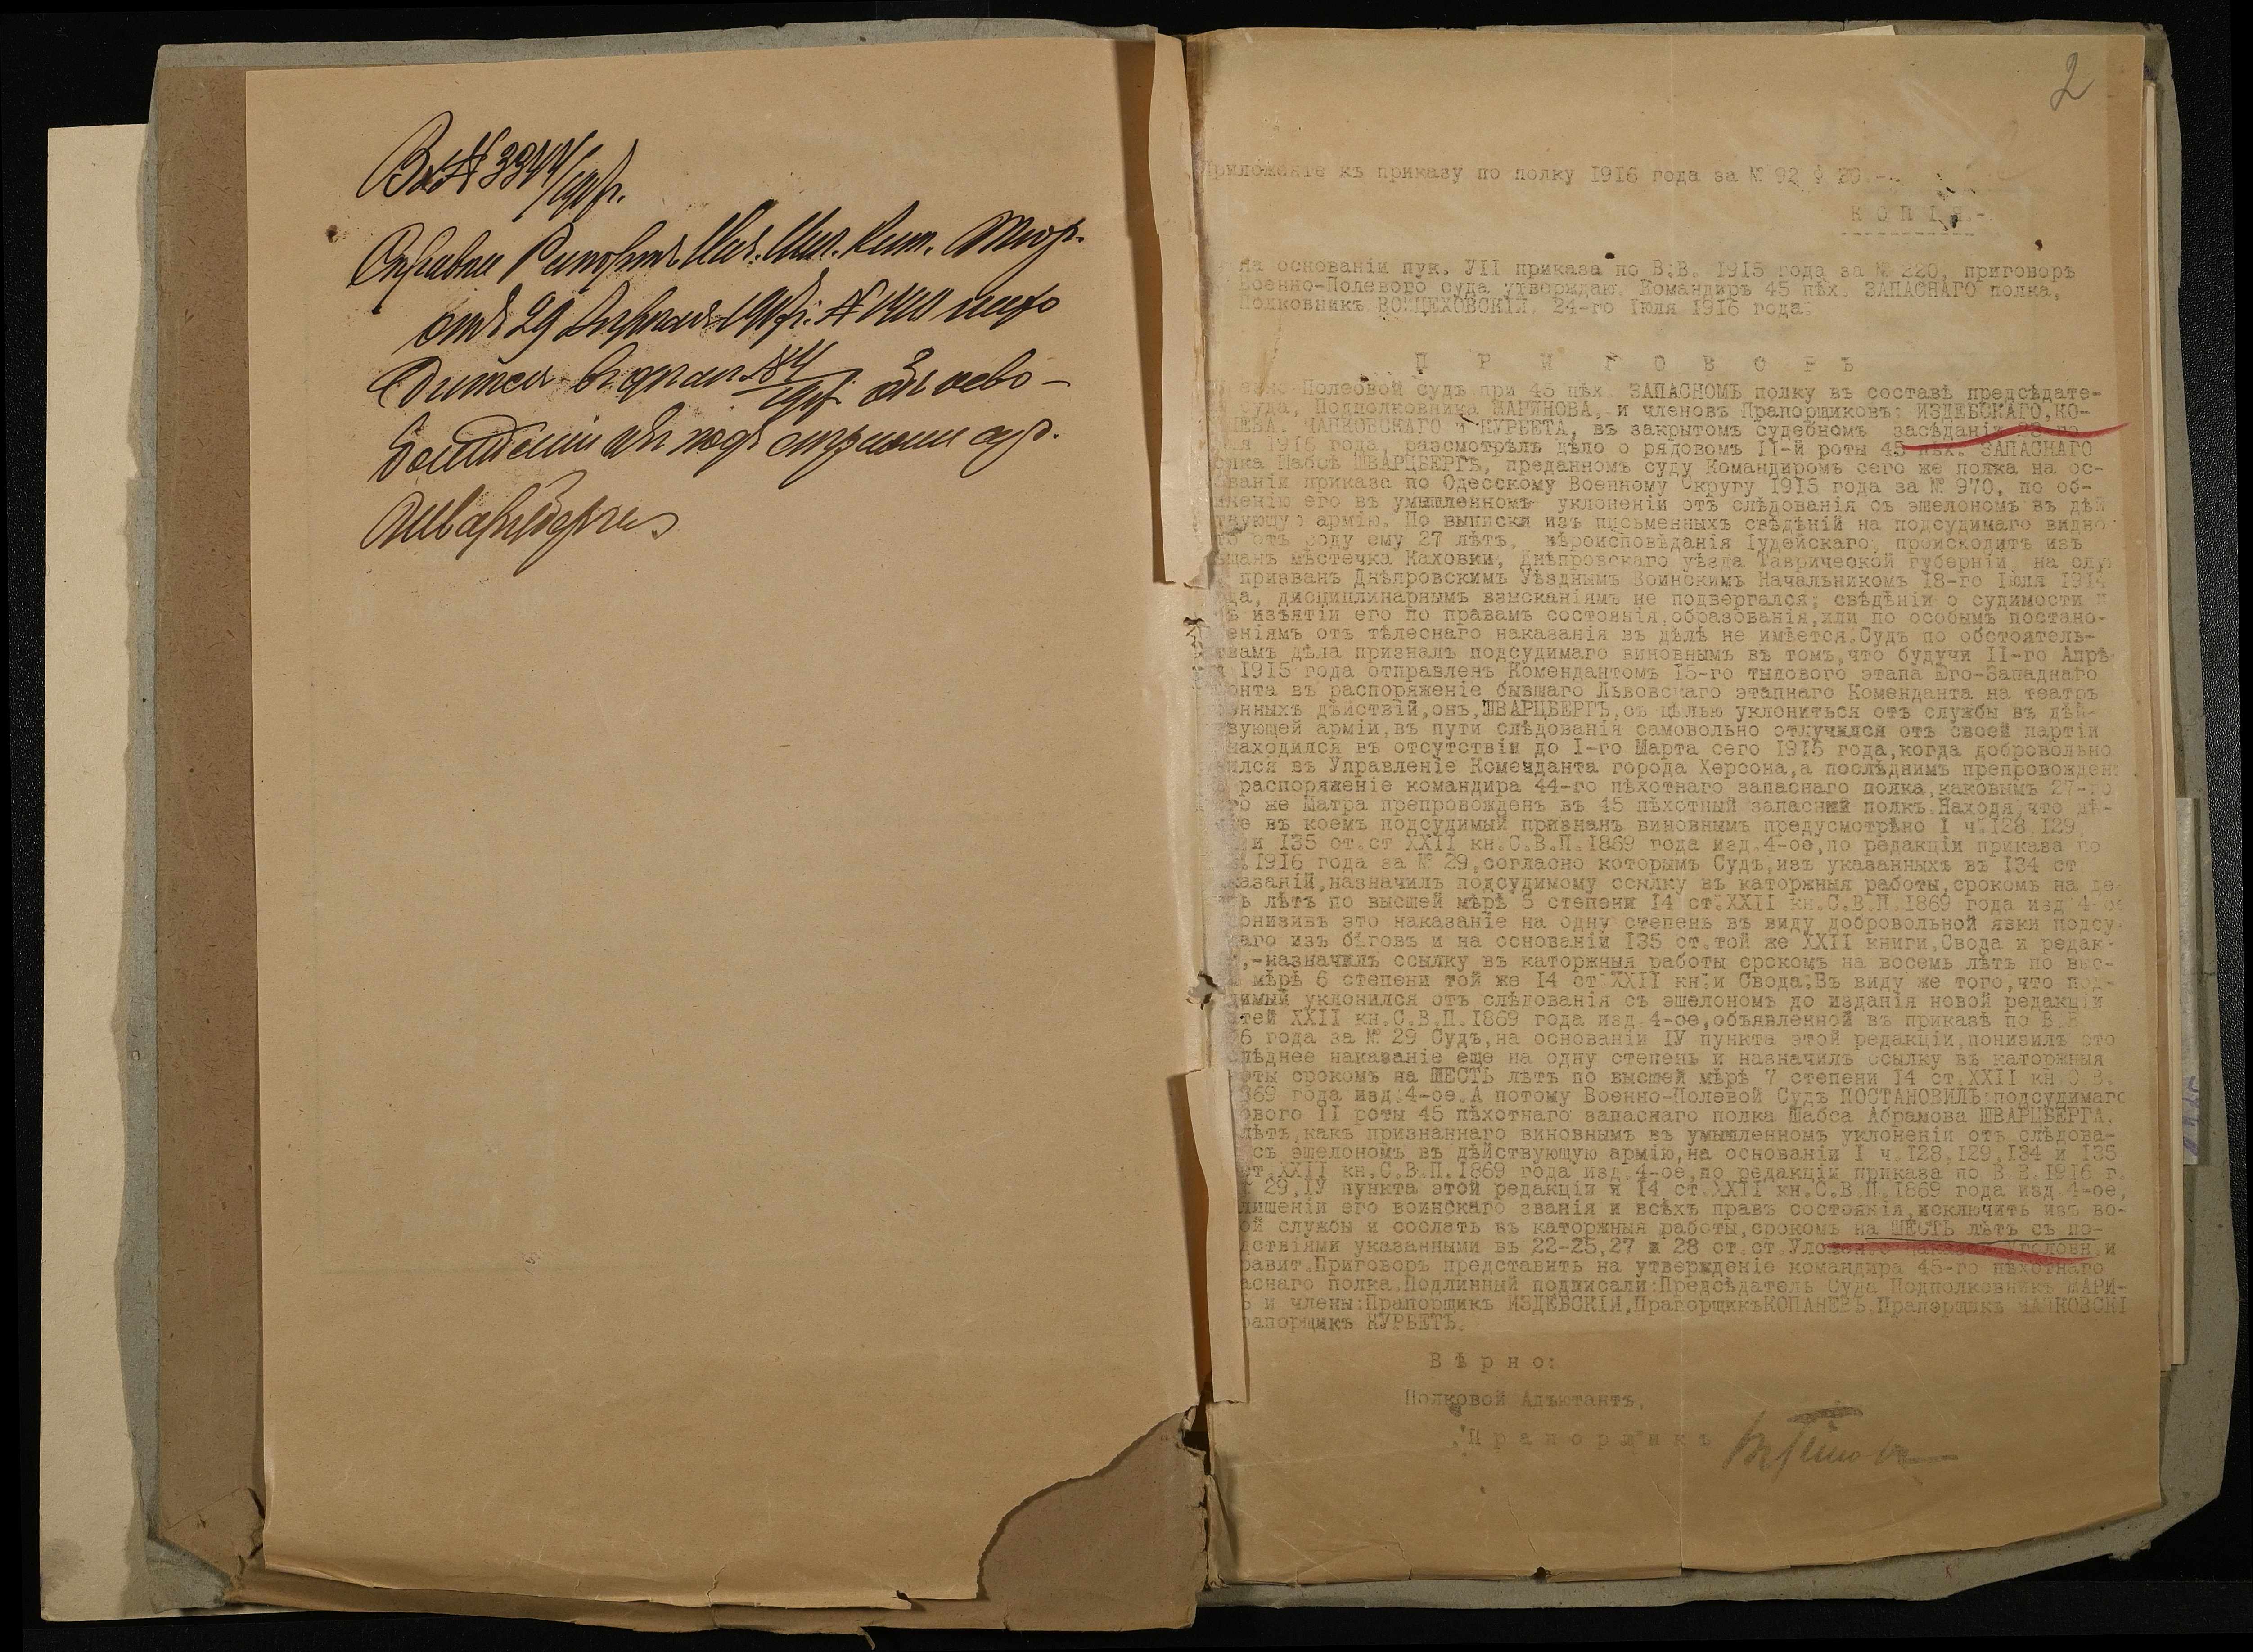 Вх № 3944/
Справка Рапортъ Нач. Кит. Тюр.
отъ 29 1917 г. №
въ дѣлѣ № объ осво-
изъ подъ стражи
Шварцберга
2
Приложеніе къ приказу по полку 1916 года за № 92 § 29.-
К О П І Я.-
На основаніи пук. УІІ приказа по В.В. 1915 года за № 220, приговоръ
Военно-Полевого суда утверждаю. Командиръ 45 пѣх. ЗАПАСНАГО полка,
Полковникъ ВОЙЦЕХОВСКІЙ. 24-го Іюля 1916 года.
П Р И Г О В О Р Ъ
Полевой судъ при 45 пѣх. ЗАПАСНОМЪ полку въ составѣ предсѣдате-
суда, Подполковника МАРИНОВА,- и членовъ Прапорщиковъ: ИЗДЕБСКАГО, КО-
НЕВА, ЧАПКОВСКАГО и КУРБЕТА, въ закрытомъ судебномъ засѣданіи 23-го
1916 года, разсмотрѣлъ дѣло о рядовомъ II-й роты 45 пѣх. ЗАПАСНАГО
лка Шабсѣ ШВАРЦБЕРГѢ, преданномъ суду Командиромъ сего же полка на ос-
ваніи приказа по Одесскому Военному Округу 1915 года за № 970, по об-
ненію его въ умышленномъ уклоненіи отъ слѣдованія съ эшелономъ въ дѣй
твующую армію. По выписки изъ письменныхъ свѣдѣній на подсудимаго видно
то отъ роду ему 27 лѣтъ, вѣроисповѣданія Іудейскаго, происходитъ изъ
щанъ мѣстечка Каховки, Днѣпровскаго уѣзда Таврической губерніи, на слу
призванъ Днѣпровскимъ Уѣзднымъ Воинскимъ Начальникомъ 18-го Іюля 1914
да, дисциплинарнымъ взысканіямъ не подвергался; свѣдѣній о судимости и
ъ изъятіи его по правамъ состоянія, образованія, или по особымъ постано-
еніямъ отъ тѣлеснаго наказанія въ дѣлѣ не имѣется. Судъ по обстоятель-
твамъ дѣла призналъ подсудимаго виновнымъ въ томъ, что будучи II-го Апрѣ
я 1915 года отправленъ Комендантомъ 15-го тылового этапа Юго-Западнаго
онта въ распоряженіе бывшаго Львовскаго этапнаго Коменданта на театръ
енныхъ дѣйствій, онъ, ШВАРЦБЕРГЪ, съ цѣлью уклониться отъ службы въ дѣй-
вующей арміи, въ пути слѣдованія самовольно отлучился отъ своей партіи
находился въ отсутствіи до I-го Марта сего 1915 года, когда добровольно
ился въ Управленіе Коменданта города Херсона, а послѣднимъ препровожденъ
распоряженіе командира 44-го пѣхотнаго запаснаго полка, каковымъ 27-го
го же Матра препровожденъ въ 45 пѣхотный запасный полкъ. Находя, что дѣ-
е въ коемъ подсудимый признанъ виновнымъ предусмотрѣно I ч. 128, 129,
и 135 ст. ст XXII кн. С.В.П. 1869 года изд. 4-ое, по редакціи приказа по
1916 года за № 29, согласно которымъ Судъ, изъ указанныхъ въ 134 ст
казаній, назначилъ подсудимому ссылку въ каторжныя работы, срокомъ на де-
ь лѣтъ по высшей мѣрѣ 5 степени 14 ст. XXII кн. С.В.П. 1869 года изд 4-ое
онизивъ это наказаніе на одну степень въ виду добровольной явки подсу
аго изъ бѣговъ и на основаніи 135 ст. той же XXII книги, Свода и редак-
,-назначилъ ссылку въ каторжныя работы срокомъ на восемь лѣтъ по выс-
мѣрѣ 6 степени той же 14 ст XXII кн. и Свода. Въ виду же того, что под-
димый уклонился отъ слѣдованія съ эшелономъ до изданія новой редакціи
тей XXII кн. С.В.П. 1869 года изд. 4-ое, объявленной въ приказѣ по В.В
6 года за № 29 Судъ, на основаніи IУ пункта этой редакціи, понизилъ это
слѣднее наказаніе еще на одну степень и назначилъ ссылку въ каторжныя
оты срокомъ на ШЕСТЬ лѣтъ по высшей мѣрѣ 7 степени 14 ст. XXII кн С.В.
869 года изд. 4-ое. А потому Военно-Полевой Судъ ПОСТАНОВИЛЪ: подсудимаго
ового II роты 45 пѣхотнаго запаснаго полка Шабса Абрамова ШВАРЦБЕРГА,
лѣтъ, какъ признаннаго виновнымъ въ умышленномъ уклоненіи отъ слѣдова-
съ эшелономъ въ дѣйствующую армію, на основаніи I ч. 128, 129, 134 и 135
ст. XXII кн. С.В.П. 1869 года изд. 4-ое, по редакціи приказа по В.В. 1916 г.
29, IУ пункта этой редакціи и 14 ст. XXII кн. С.В.П. 1869 года изд. 4-ое,
лишеніи его воинскаго званія и всѣхъ правъ состоянія, исключить изъ во-
ой службы и сослать въ каторжныя работы, срокомъ на ШЕСТЬ лѣтъ съ по-
дствіями указанными въ 22-25, 27 и 28 ст. ст. Уложенія Наказан. Уголовн. и
равит. Приговоръ представить на утвержденіе командира 45-го пѣхотнаго
аснаго полка. Подлинный подписали: Предсѣдатель Суда Подполковникъ МАРИ-
Ъ и члены: Прапорщикъ ИЗДЕБСКІЙ, Прапорщикъ КОПАНЕВЪ, Прапорщикъ ЧАПКОВСКІ
рапорщикъ КУРБЕТЪ.
В ѣ р н о:
Полковой Адъютантъ,
П р а п о р щ и к ъ